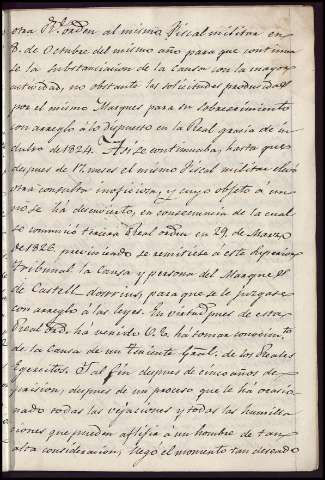 otra Rl. orden al mismo Fiscal militar en
8. de Octubre del mismo año para que continua-
se la substanciacion de la Causa con la mayor
actividad, no obstante las solicitudes producidas
por el mismo Marques para su sobreseimiento
con arreglo á lo dispuesto en la Real gracia de in-
dulto de 1824. Asi se continuaba, hasta que
despues de 17. meses el mismo Fiscal militar elevó
otra consulta inoficiosa, y cuyo objeto aún
no se há descubierto, en consecuencia de la cual
se comunicó tercera Real orden en 29. de Marzo
de 1826. previniendo se remitiese a este Supremo
Tribunal la Causa y persona del Marques
de Castell-dosrius, para que se le juzgase
con arreglo a las leyes. En virtud pues de esta
Real ord. há venido V.A. há tomar conocimto.
de la Causa de un teniente Gral. de los Reales
Egercitos. Tal fin despues de cinco años de
prision, despues de un proceso que le há ocasio-
nado todas las vejaciones y todas las humilla-
ciones que puedan afligir á un hombre de tan
alta consideracion, llegó el momento tan deseado